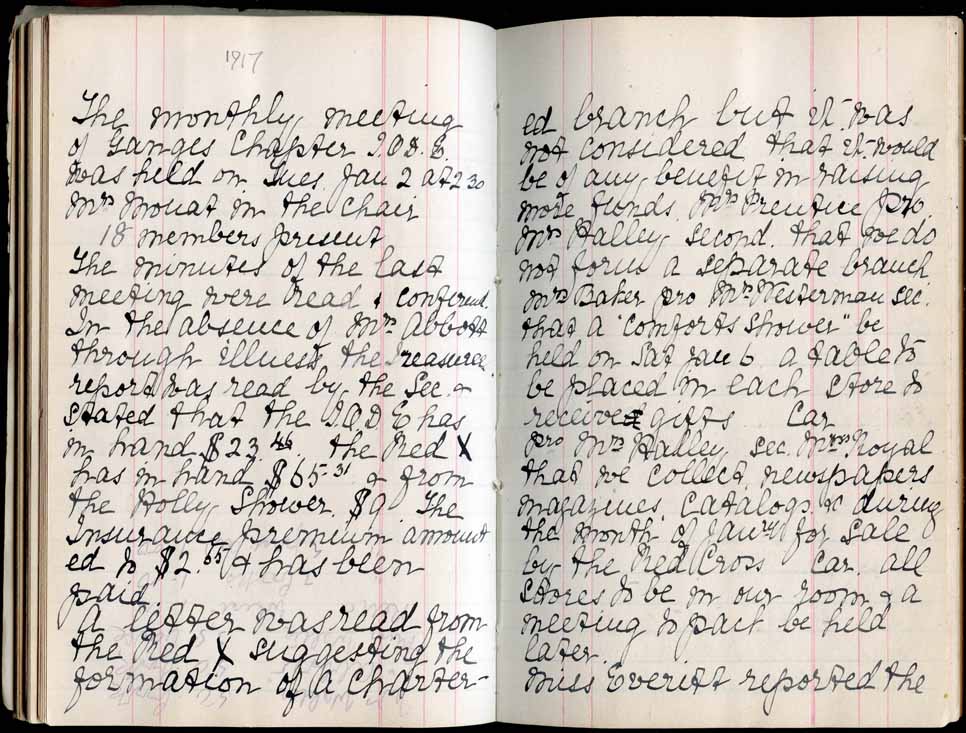 1917
The monthly meeting
of Ganges Chapter I.O.D.E.
was held on Tues. Jan 2 at 2 30
Mrs Mouat in the chair
18 members present
The minutes of the last
meeting were read & confirmed.
In the absence of Mrs Abbott
through illness the Treasurer
report was read by the Sec. &
stated that the I.O.D.E has
in hand $23.46 the Red X
has in hand $65.31 & from
the Holly Shower. $9 The
Insurance premium amount
ed to $2.65 & has been
paid.
A letter was read from
the Red X suggesting the
formation of a charter-
ed branch but it was
not considered that it would
be of any benefit in raising
more funds. Mrs Prentice pro.
Mrs Halley second. that we do
not form a separate branch
Mrs Baker pro Mrs Westerman sec.
that a "comforts shower" be
held on Sat Jan 6 a table to
be placed in each store to
receive gifts Car
pro Mrs Halley. sec. Mrs Royal
that we collect newspapers
magazines. catalogs & during
the month of Janry for sale
by the Red Cross Car. all
stores to be in our room & a
meeting to pack be held
later.
Miss Everitt reported the